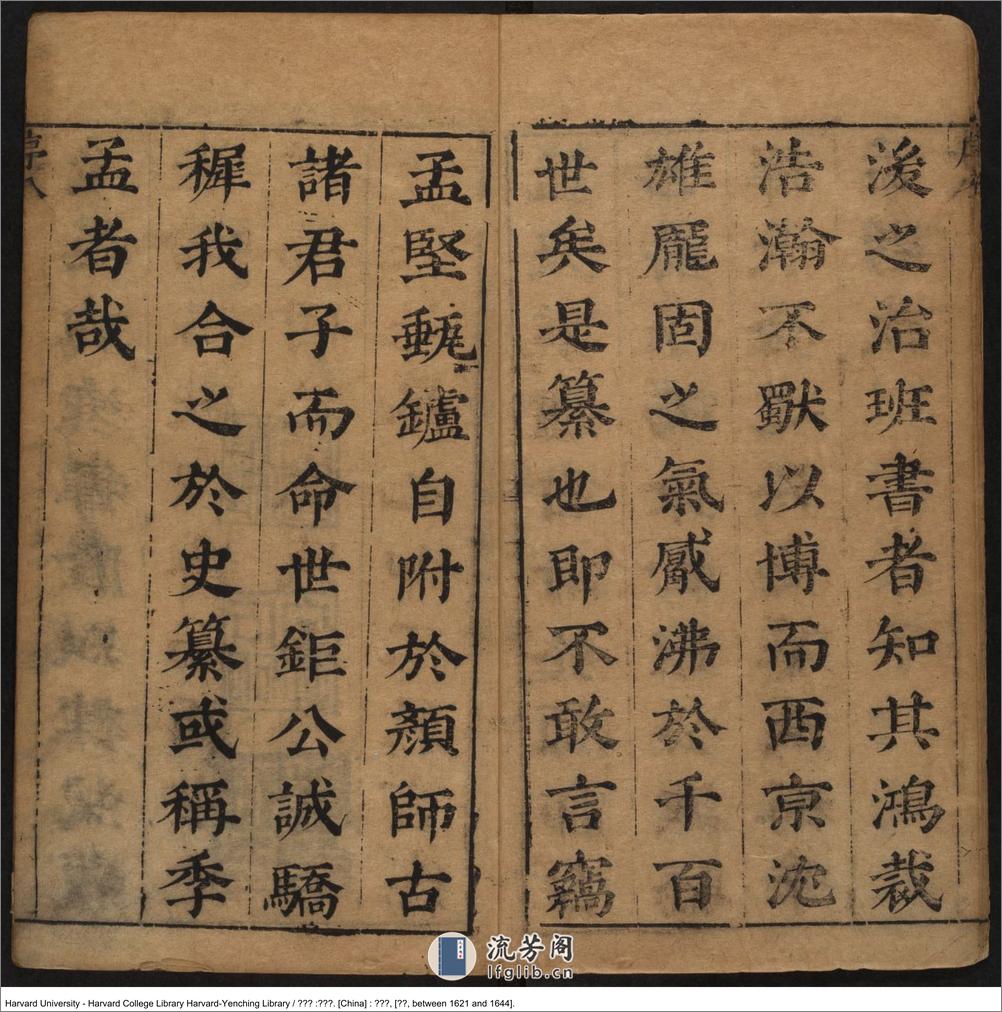 後之治班書者知其鴻裁
浩瀚不猒以博而西亰沈
雄龎固之氣觱沸於千百
世矣是纂也即不敢言竊
孟堅甄鑪自附於顏師古
諸君子而命世鉅公誠驕
穉我合之於史纂或稱季
孟者哉
序八
流芳阁
lfglib.cn
Harvard University - Harvard College Library Harvard-Yenching Library / ??? :???. [China] : ???, [??, between 1621 and 1644].